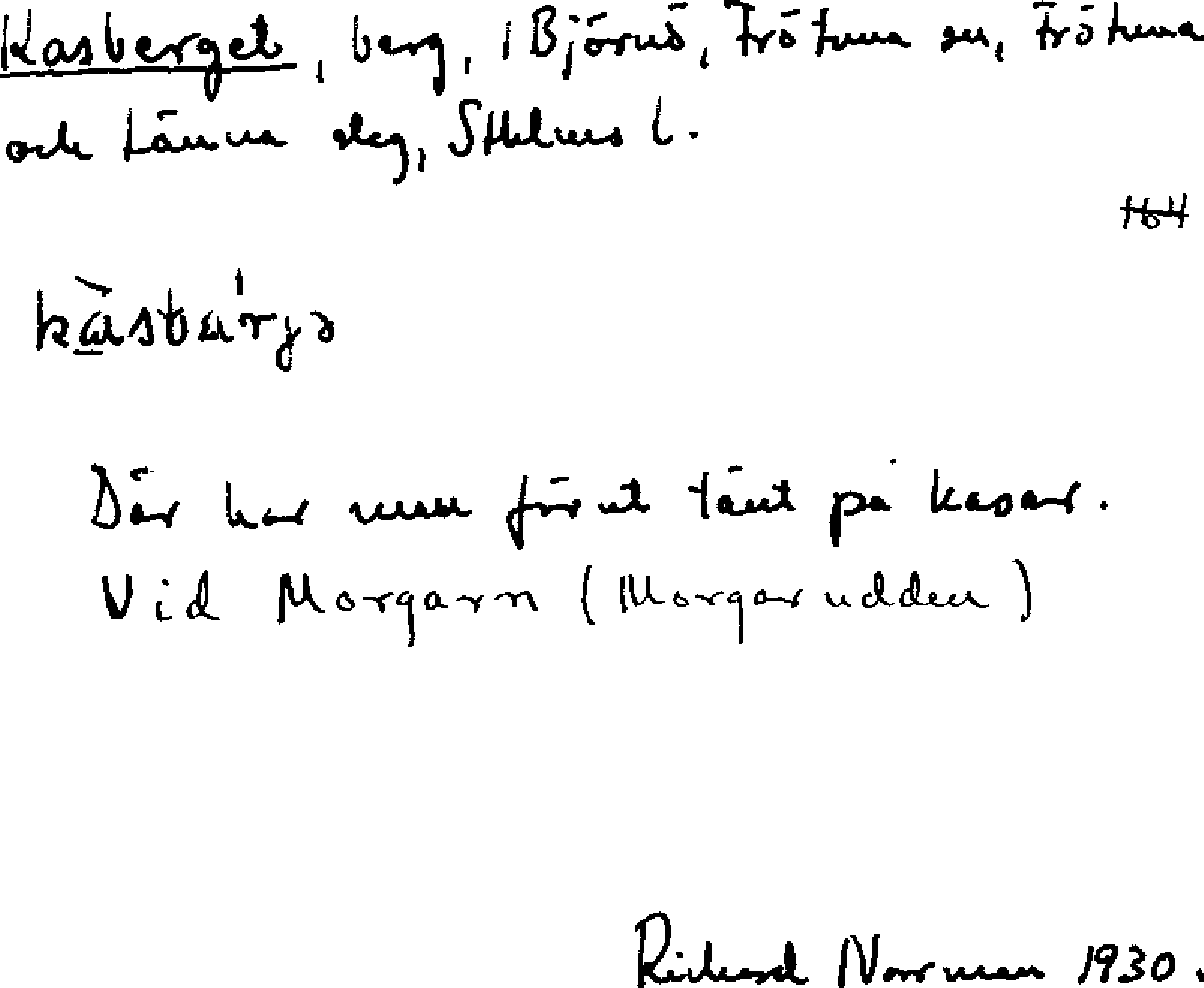 Kasberget, berg, i Björnö, Frötuna sn, Frötuna
och Länna slg, Sthlms l.
164
kàsbär'jə
Där har man förut tänt på kasar.
Vid Morgarn (Morgarudden)
Rickard Norrman 1930.